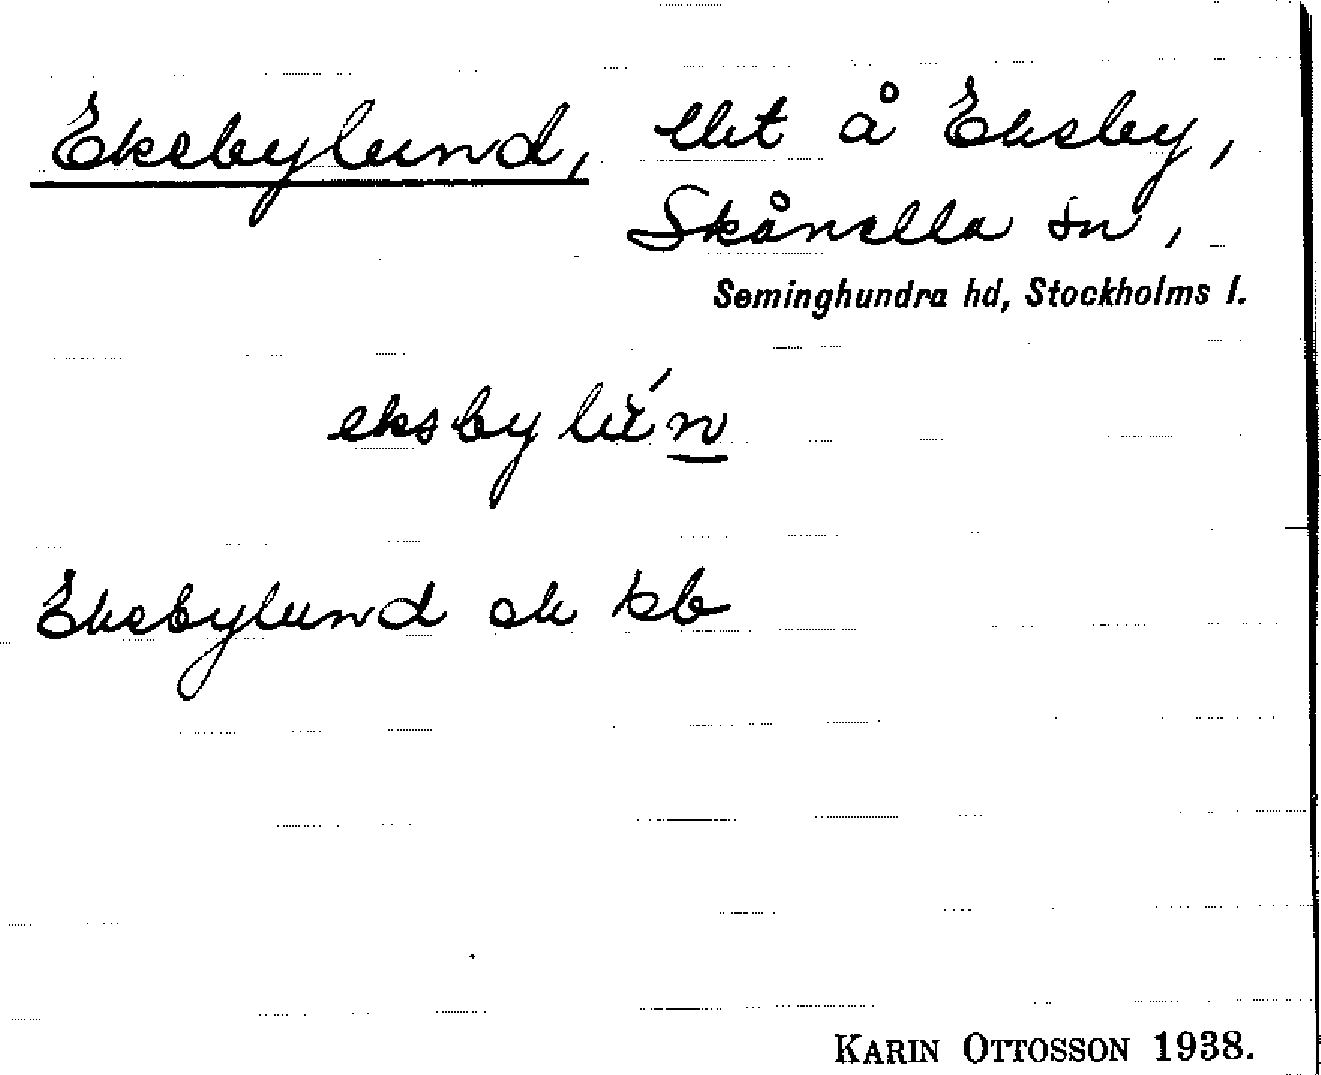 Eksbylund, lht å Eksby,
Skånella sn,
Seminghundra hd, Stockholms l.
eksbylu'n
Eksbylund ek kb
KARIN OTTOSSON 1938.